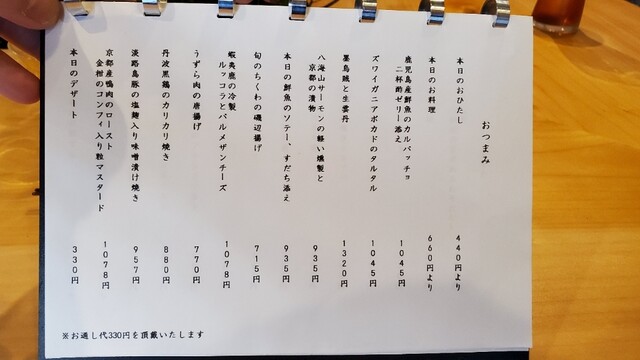 おつまみ
本日のおひたし
440円より
本日のお料理
660円より
鹿児島産鮮魚のカルパッチョ
二杯酢ゼリー添え
1045円
ズワイガニアボカドのタルタル
1045円
墨烏賊と生雲丹
1320円
八海山サーモンの軽い燻製と
京都の漬物
935円
本日の鮮魚のソテー、すだち添え
935円
旬のちくわの磯辺揚げ
715円
蝦夷鹿の冷製
ルッコラとパルメザンチーズ
1078円
うずら肉の唐揚げ
770円
丹波黒鶏のカリカリ焼き
880円
淡路島豚の塩麹入り味噌漬け焼き
957円
京都産鴨肉のロースト
金柑のコンフィ入り粒マスタード
1078円
本日のデザート
330円
※お通し代330円を頂戴いたします